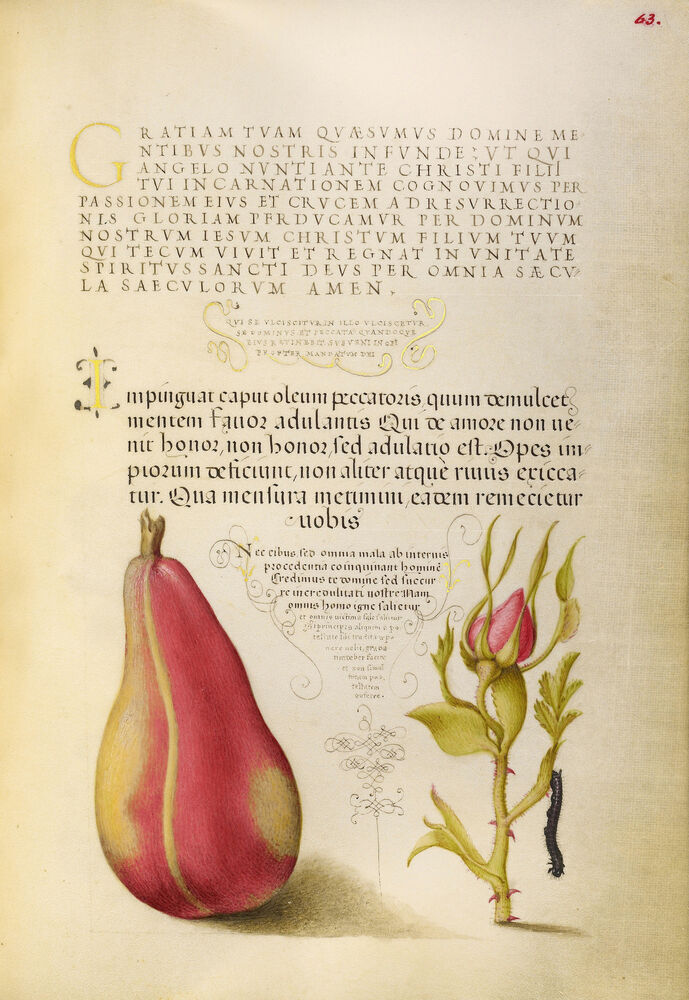 63.
GRATIAM TVAM QVÆSVMVS DOMINE ME-
NTIBVS NOSTRIS INFVNDE; VT QVI
ANGELO NVNTIANTE CHRISTI FILII
TVI INCARNATIONEM COGNOVIMVS PER
PASSIONEM EIVS ET CRVCEM AD RESVRRECTIO-
NIS GLORIAM PERDVCAMVR PER DOMINVM
NOSTRVM IESVM CHRISTVM FILIVM TVVM
QVI TECVM VIVIT ET REGNAT IN VNITATE
SPIRITVS SANCTI DEVS PER OMNIA SÆCV-
LA SAECVLORVM AMEN.
QVI SE VLCISCITVR IN ILLO VLCISCETVR
SE DOMINVS ET PECCATA QVANDOQVE
EIVS RETINEBIT SVBVENI INOPI
PROPTER MANDATVM DEI
Impinguat caput oleum peccatoris, quum demulcet
mentem fauor adulantis Qui de amore non ue-
nit honor, non honor, sed adulatio est. Opes im-
piorum deficiunt, non aliter atquè riuus exicca-
tur. Qua mensura metimini, eadem remecietur
uobis
Nec cibus, sed omnia mala ab internis
procedentia coinquinant hominē
Credimus te domine sed succur
re incredulitati nostre Nam
omnis homo igne salietur
et omnis uictima sale salietur